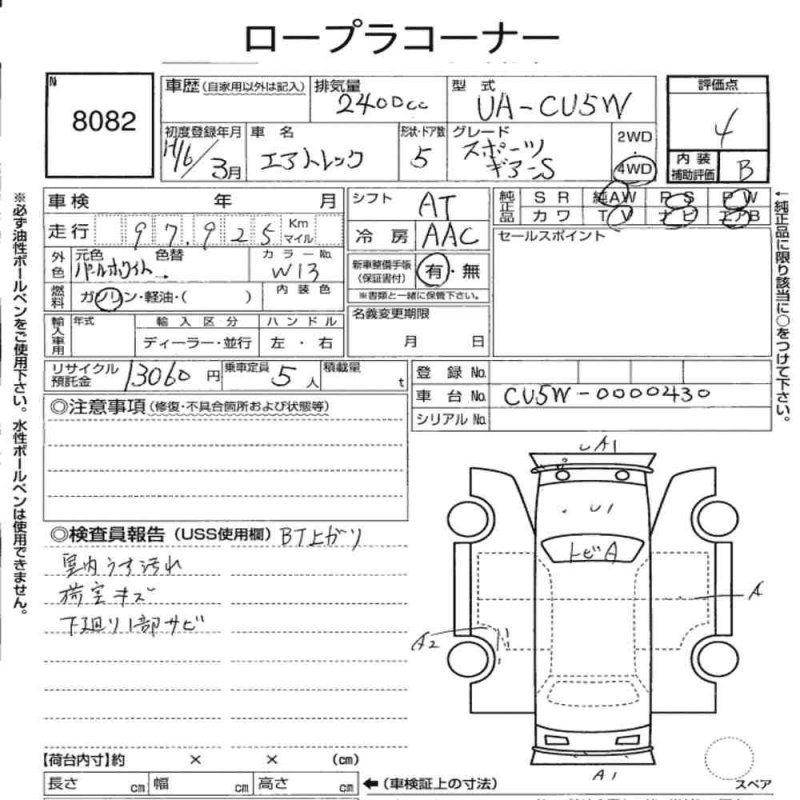 ロープラコーナー
No
8082
車歴 (自家用以外は記入)
排気量
2400cc
型式
UA-CU5W
評価点
4
初度登録年月
H16/3月
車名
エアトレック
形状・ドア数
5
グレード
スポーツ
ギアS
2WD
4WD
内装
補助評価
B
車検 年 月
シフト
AT
純正品
SR 純AW PS PW
カワ TV ナビ エアB
走行 97,925 Km
マイル
冷房
AAC
セールスポイント
外色
元色 色替
パールホワイト
カラーNo.
W13
新車整備手帳
(保証書付)
有・無
※書類と一緒に保管下さい。
燃料
ガソリン・軽油・( )
内装色
名義変更期限
月 日
輸入車用
年式
輸入区分
ハンドル
ディーラー・並行
左・右
リサイクル
預託金
13060円
乗車定員
5人
積載量
t
登録No.
車台No.
CU5W-0000430
シリアルNo.
◎注意事項 (修復・不具合箇所および状態等)
◎検査員報告 (USS使用欄) BT上がり
室内うす汚れ
荷室キズ
下廻り1部サビ
UA1
U1
トビA
A
A2
A1
スペア
【荷台内寸】約 × × (cm)
長さ cm 幅 cm 高さ cm
←(車検証上の寸法)
※必ず油性ボールペンをご使用下さい。水性ボールペンは使用できません。
←純正品に限り該当に○をつけて下さい。